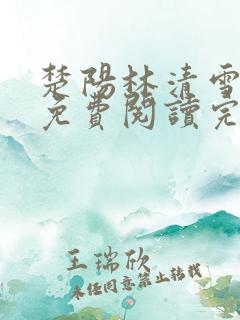 楚陽林清雪
免費閱讀完
王瑞欣
未經同意禁止轉載